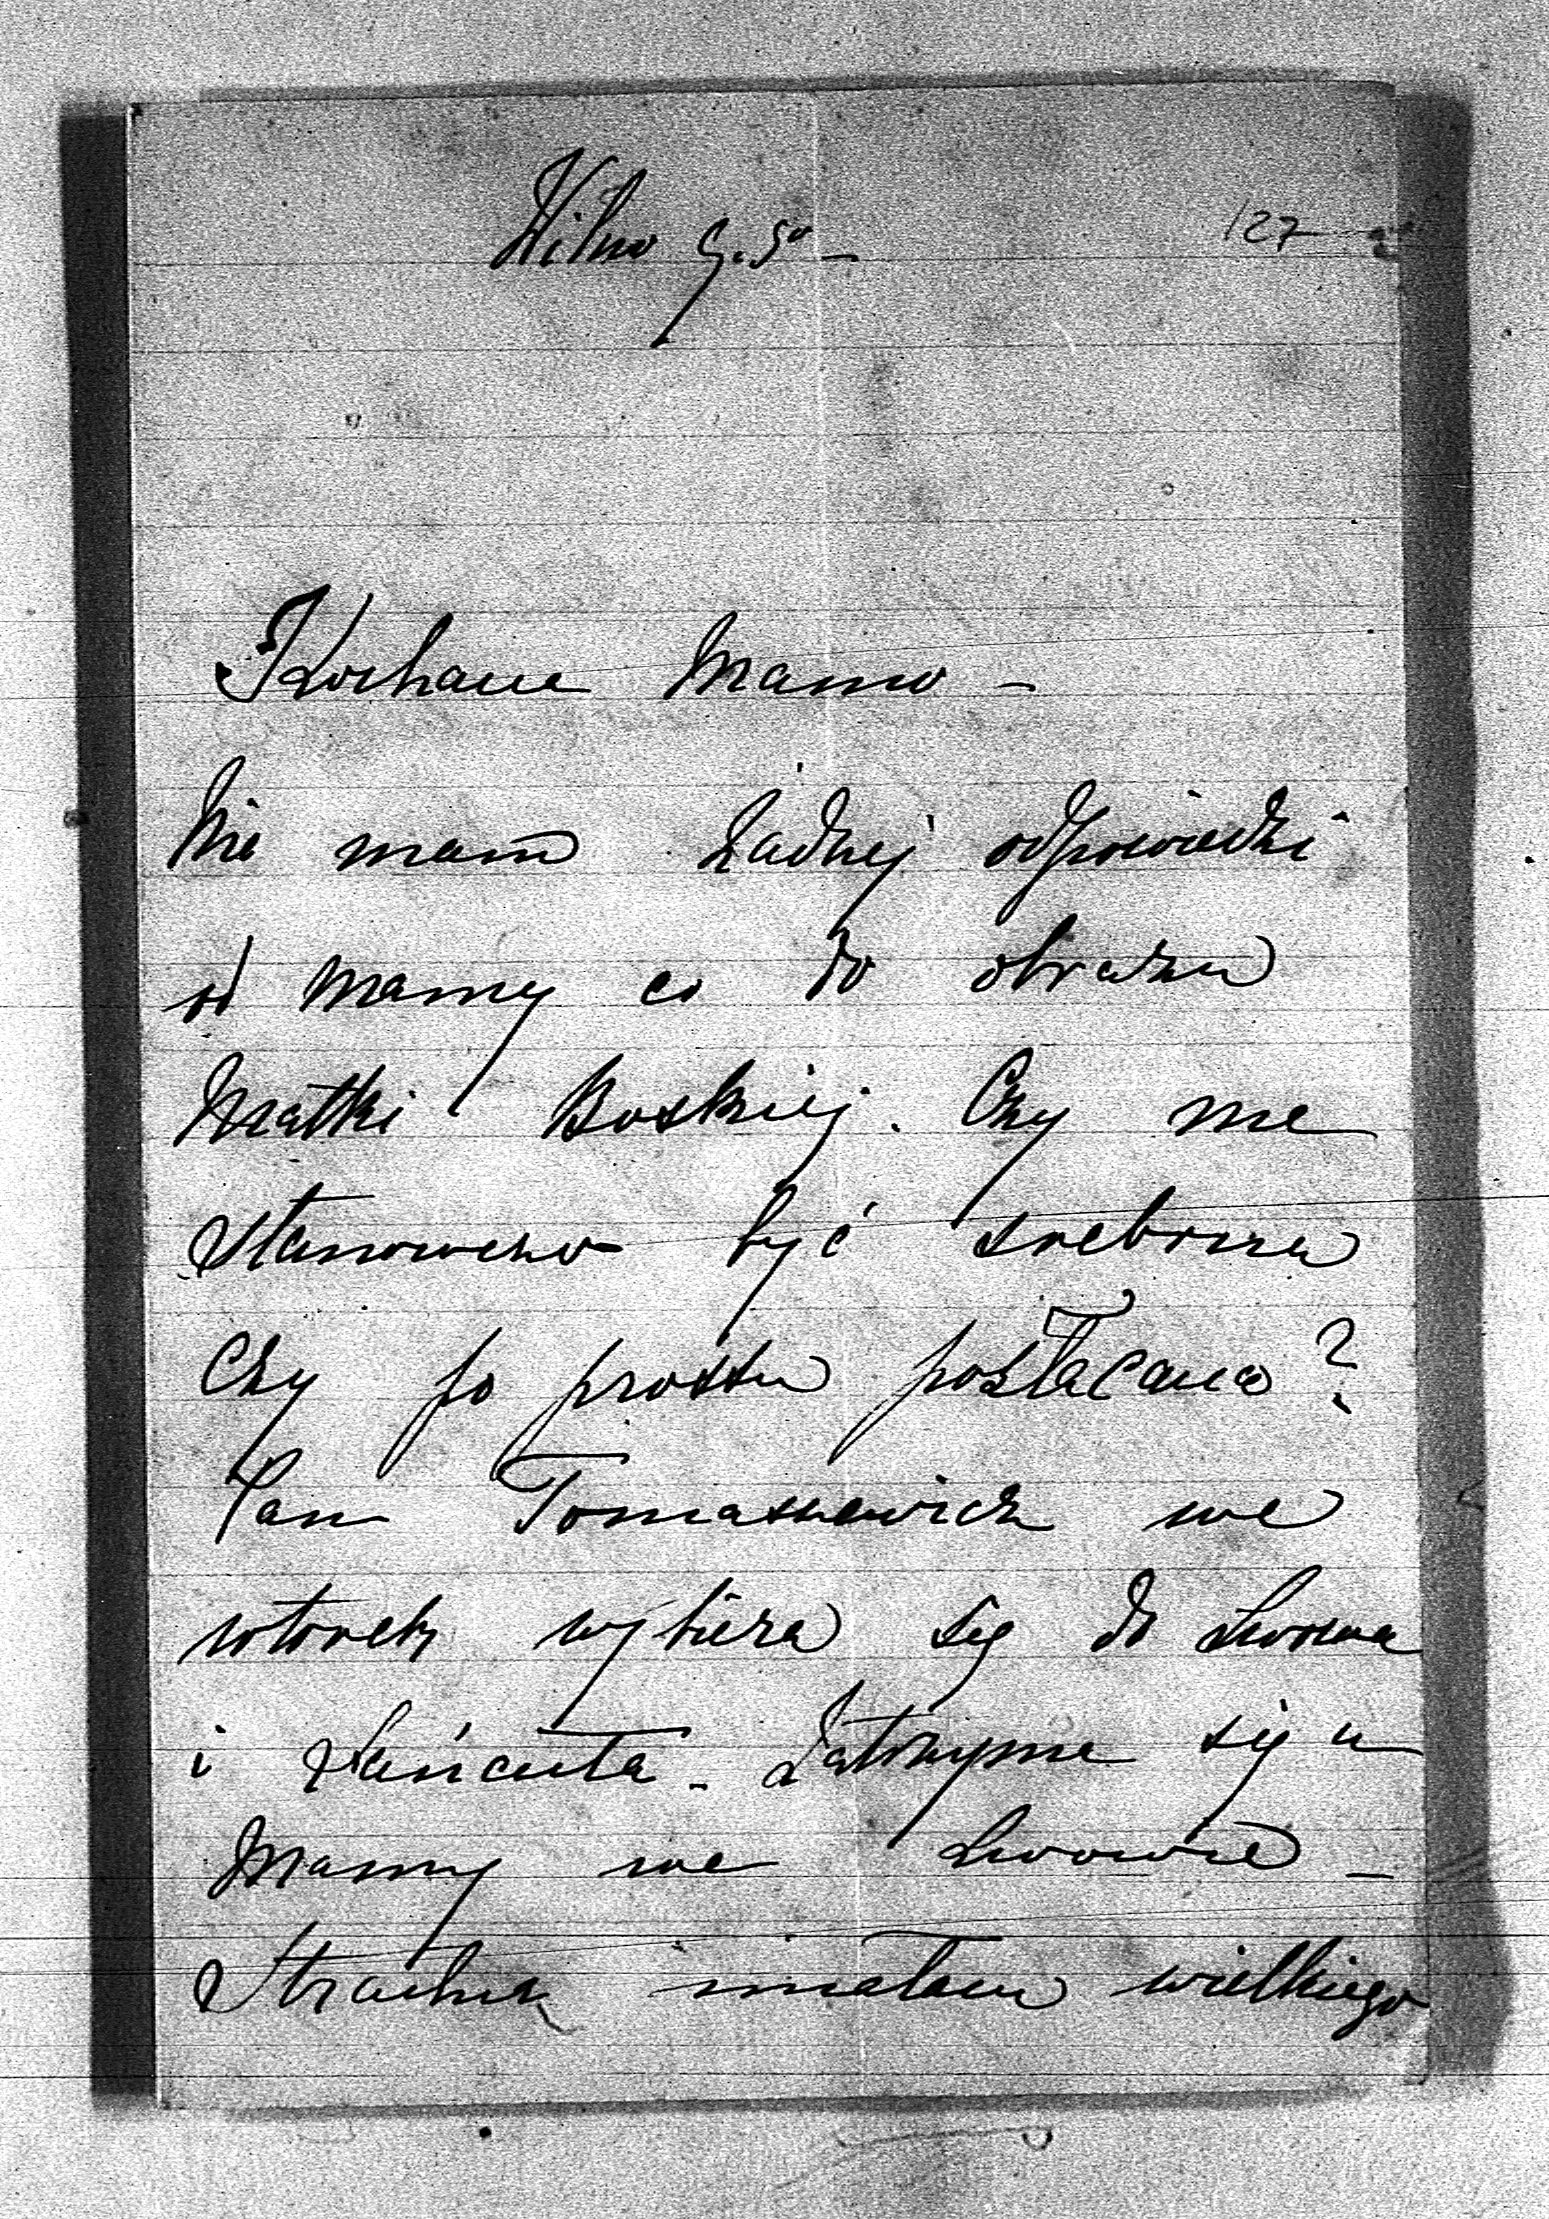 Wilno g. 5º –
127
Kochana Mamo –
Nie mam żadnej odpowiedzi
od Mamy co do obrazu
Matki Boskiej. Czy ma
stanowczo być srebrna
Czy po prostu pozłacana?
Pan Tomaszewicz we
wtorek wybiera się do Lwowa
i Łańcuta. Zatrzyma się u
Mamy we Lwowie –
Stracha miałam wielkiego